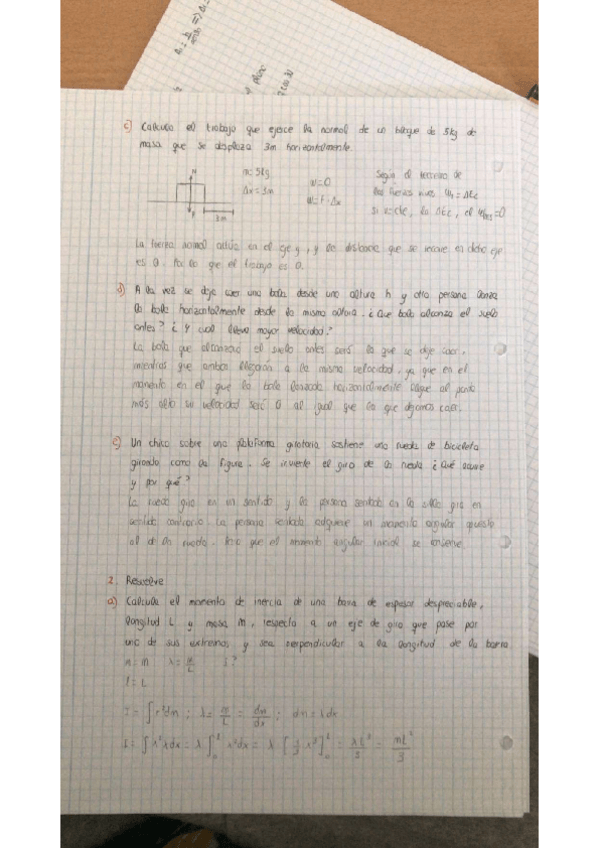 c) Calcula el trabajo que ejerce la normal de un bloque de 5kg de
masa que se desplaza 3m horizontalmente.
N
P
3m
m: 5kg
Δx = 3m
W=0
W=F·Δx
Según el teorema de
las fuerzas vivas Wt = ΔEc
si v=cte, la ΔEc, el =0
La fuerza normal actúa en el eje y, y la distancia que se recorre en dicho eje
es 0. Por lo que el trabajo es 0.
d) A la vez se deja caer una bola desde una altura h y otra persona lanza
la bola horizontalmente desde la misma altura. ¿Que bola alcanza el suelo
antes? ¿Y cual lleva mayor velocidad?
La bola que alcanzará el suelo antes será la que se deje caer,
mientras que ambas llegarán a la misma velocidad, ya que en el
momento en el que la bola lanzada horizontalmente llegue al punto
más alto su velocidad será 0 al igual que la que dejamos caer.
e) Un chico sobre una plataforma giratoria sostiene una rueda de bicicleta
girando como la figura. Se invierte el giro de la rueda ¿Qué ocurre
y por qué?
La rueda gira en un sentido y la persona sentada en la silla gira en
sentido contrario. La persona sentada adquiere un momento angular opuesto
al de la rueda. que el momento angular inicial se conserve.
2. Resuelve
a) Calcula el momento de inercia de una barra de espesor despreciable,
longitud L y masa m, respecto a un eje de giro que pase por
uno de sus extremos, y sea perpendicular a la longitud de la barra
m = m λ = m/L I?
l = L
I = ∫r²dm ; λ = m/L = dm/dx ; dm = λdx
I = ∫x²λdx = λ∫₀ᴸ x²dx = λ [1/3 x³]₀ᴸ = λL³/3 = mL²/3